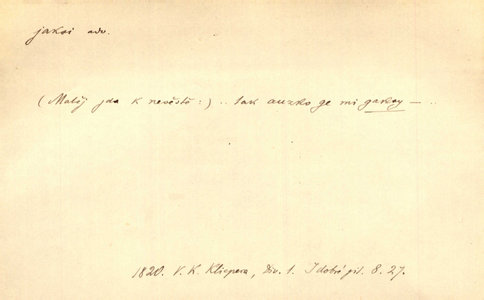 jaksi adv.
(Matěj jda k nevěstě:) .. tak auzko ge mi gaksy — ..
1820. V. K. Klicpera, Div. 1. I dobré jit. 8. 27.